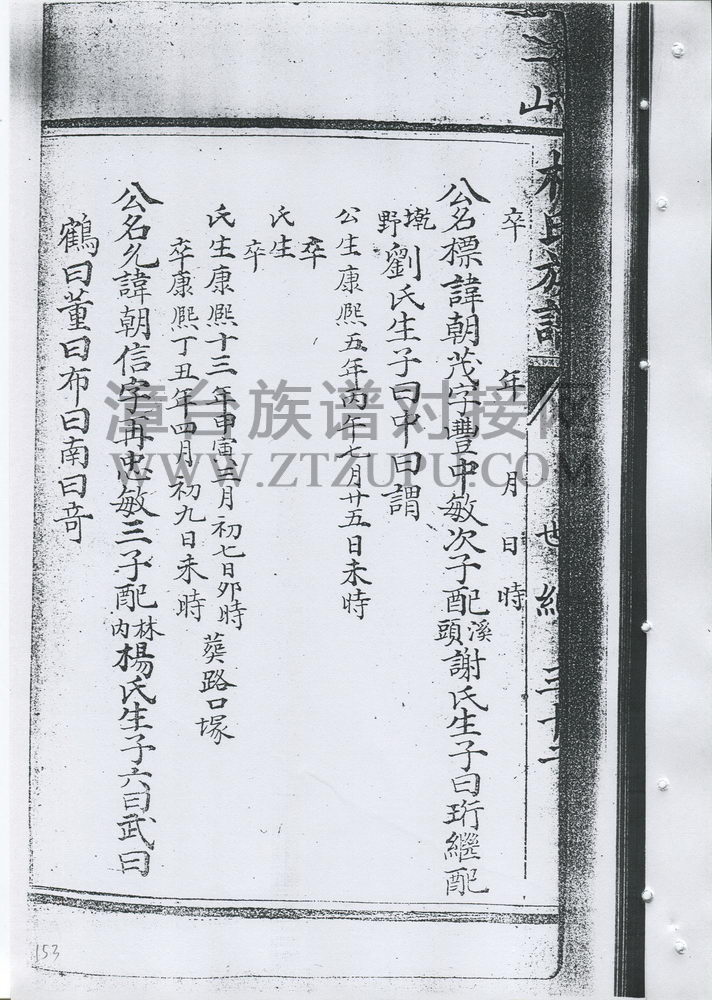 二山
林氏族譜
世紀 三十二
卒 年 月 日 時
公名標諱朝茂字豐中敏次子配溪頭謝氏生子曰珩繼配
墘野劉氏生子曰中曰謂
公生康熙五年丙午七月廿五日未時
卒
氏生
卒
氏生康熙十三年甲寅三月初七日卯時 葬路口塚
卒康熙丁丑年四月初九日未時
公名允諱朝信字再忠敏三子配林內楊氏生子六曰武曰
鶴曰董曰布曰南曰奇
漳台族谱对接网
WWW.ZTZUPU.COM
153